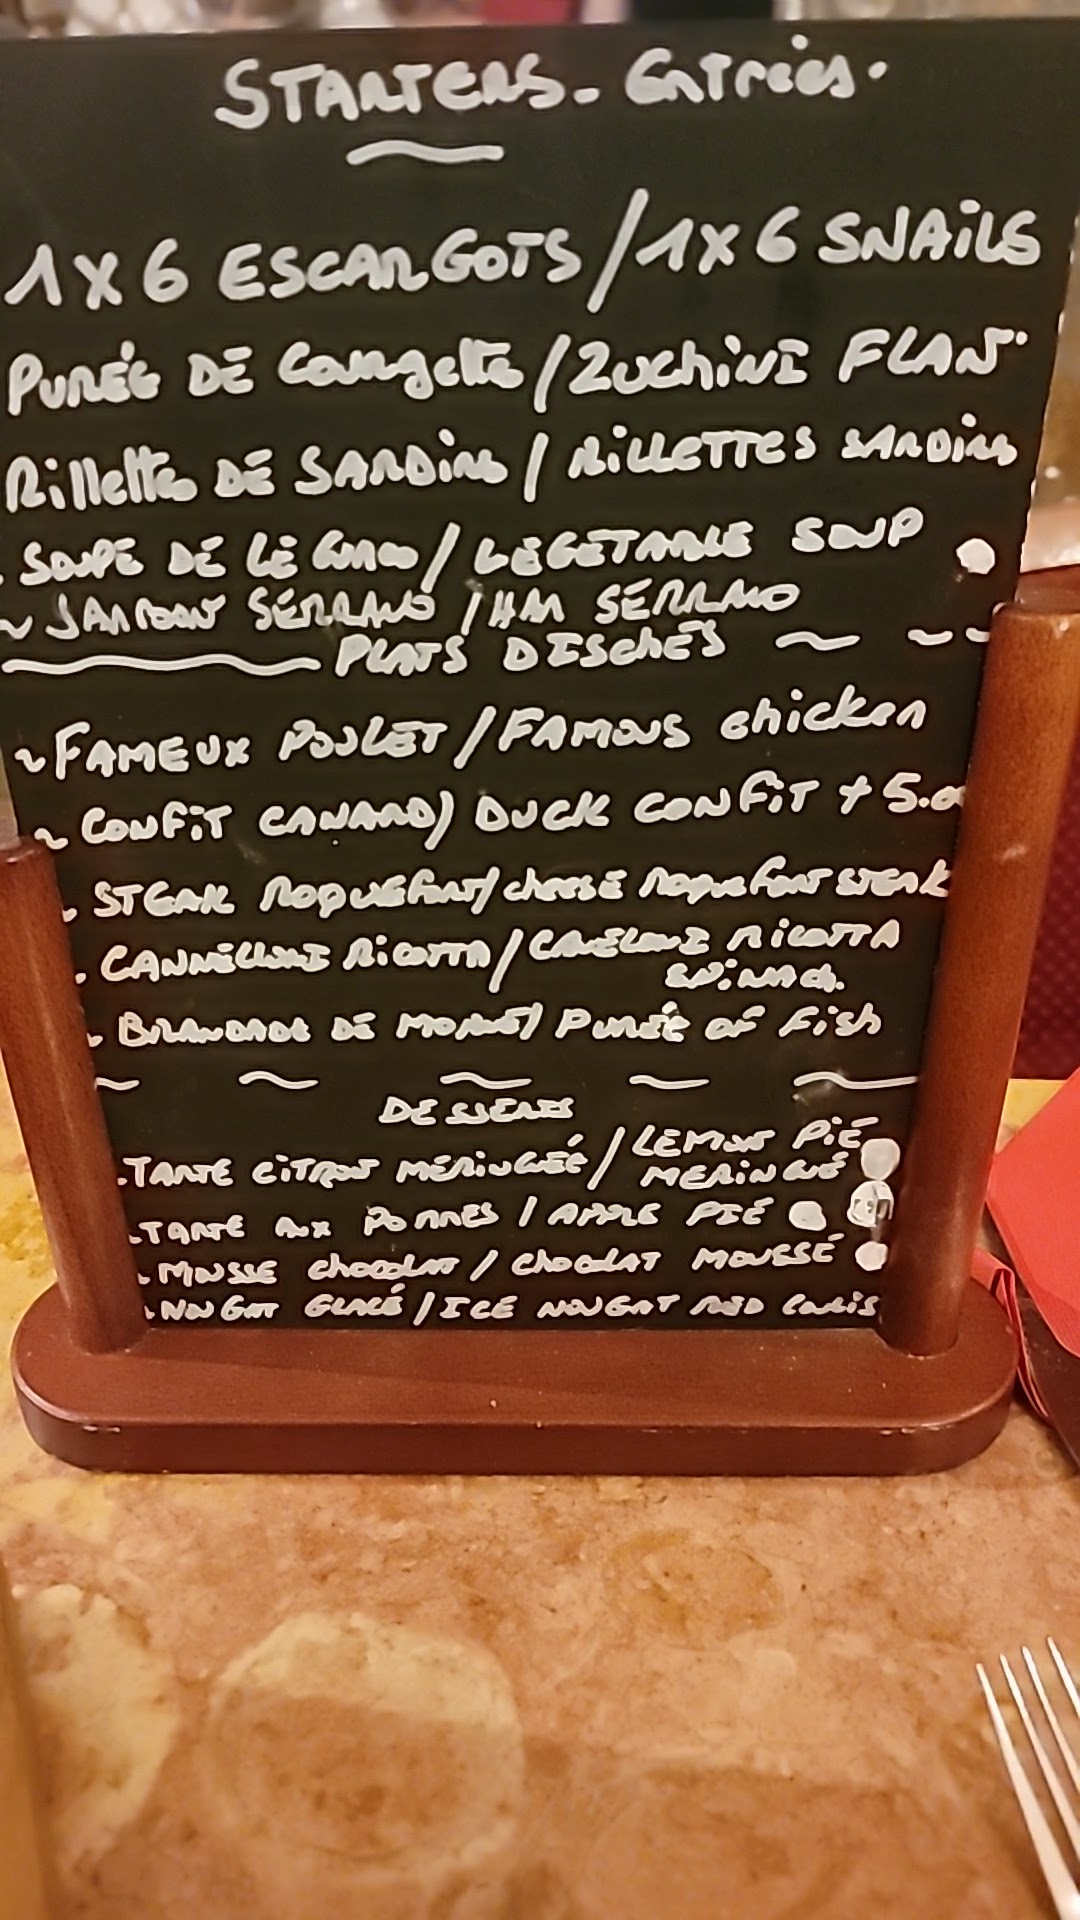 STARTERS - Entrées.
1 X 6 ESCARGOTS / 1 X 6 SNAILS
PURÉE DE Courgette / ZUCHINI FLAN
Rillette DE SARDine / RILLETTES SARDine
SOUPE DE LÉGUME / LEGETABLE SOUP
~ JAMBON SERRANO / HAM SERRANO
PLATS DISCHES ~ ~ ~
~ FAMEUX POULET / FAMOUS chicken
~ CONFIT CANARD / DUCK CONFIT + 5.0
STEAK ROQUEFORT / cheese Roquefort STEAK
. CANNELLONI RICOTTA / CANELONI RICOTTA
SPINACH.
BRANDADE DE MORUE / PURÉE OF Fish
DESSERTS
. TARTE CITRON MERINGUÉE / LEMON PIE
MERINGUE
. TARTE AUX POMMES / APPLE PIE
. MOUSSE chocolAT / chocolAT MOUSSE
. NOUGAT GLACÉ / ICE NOUGAT RED